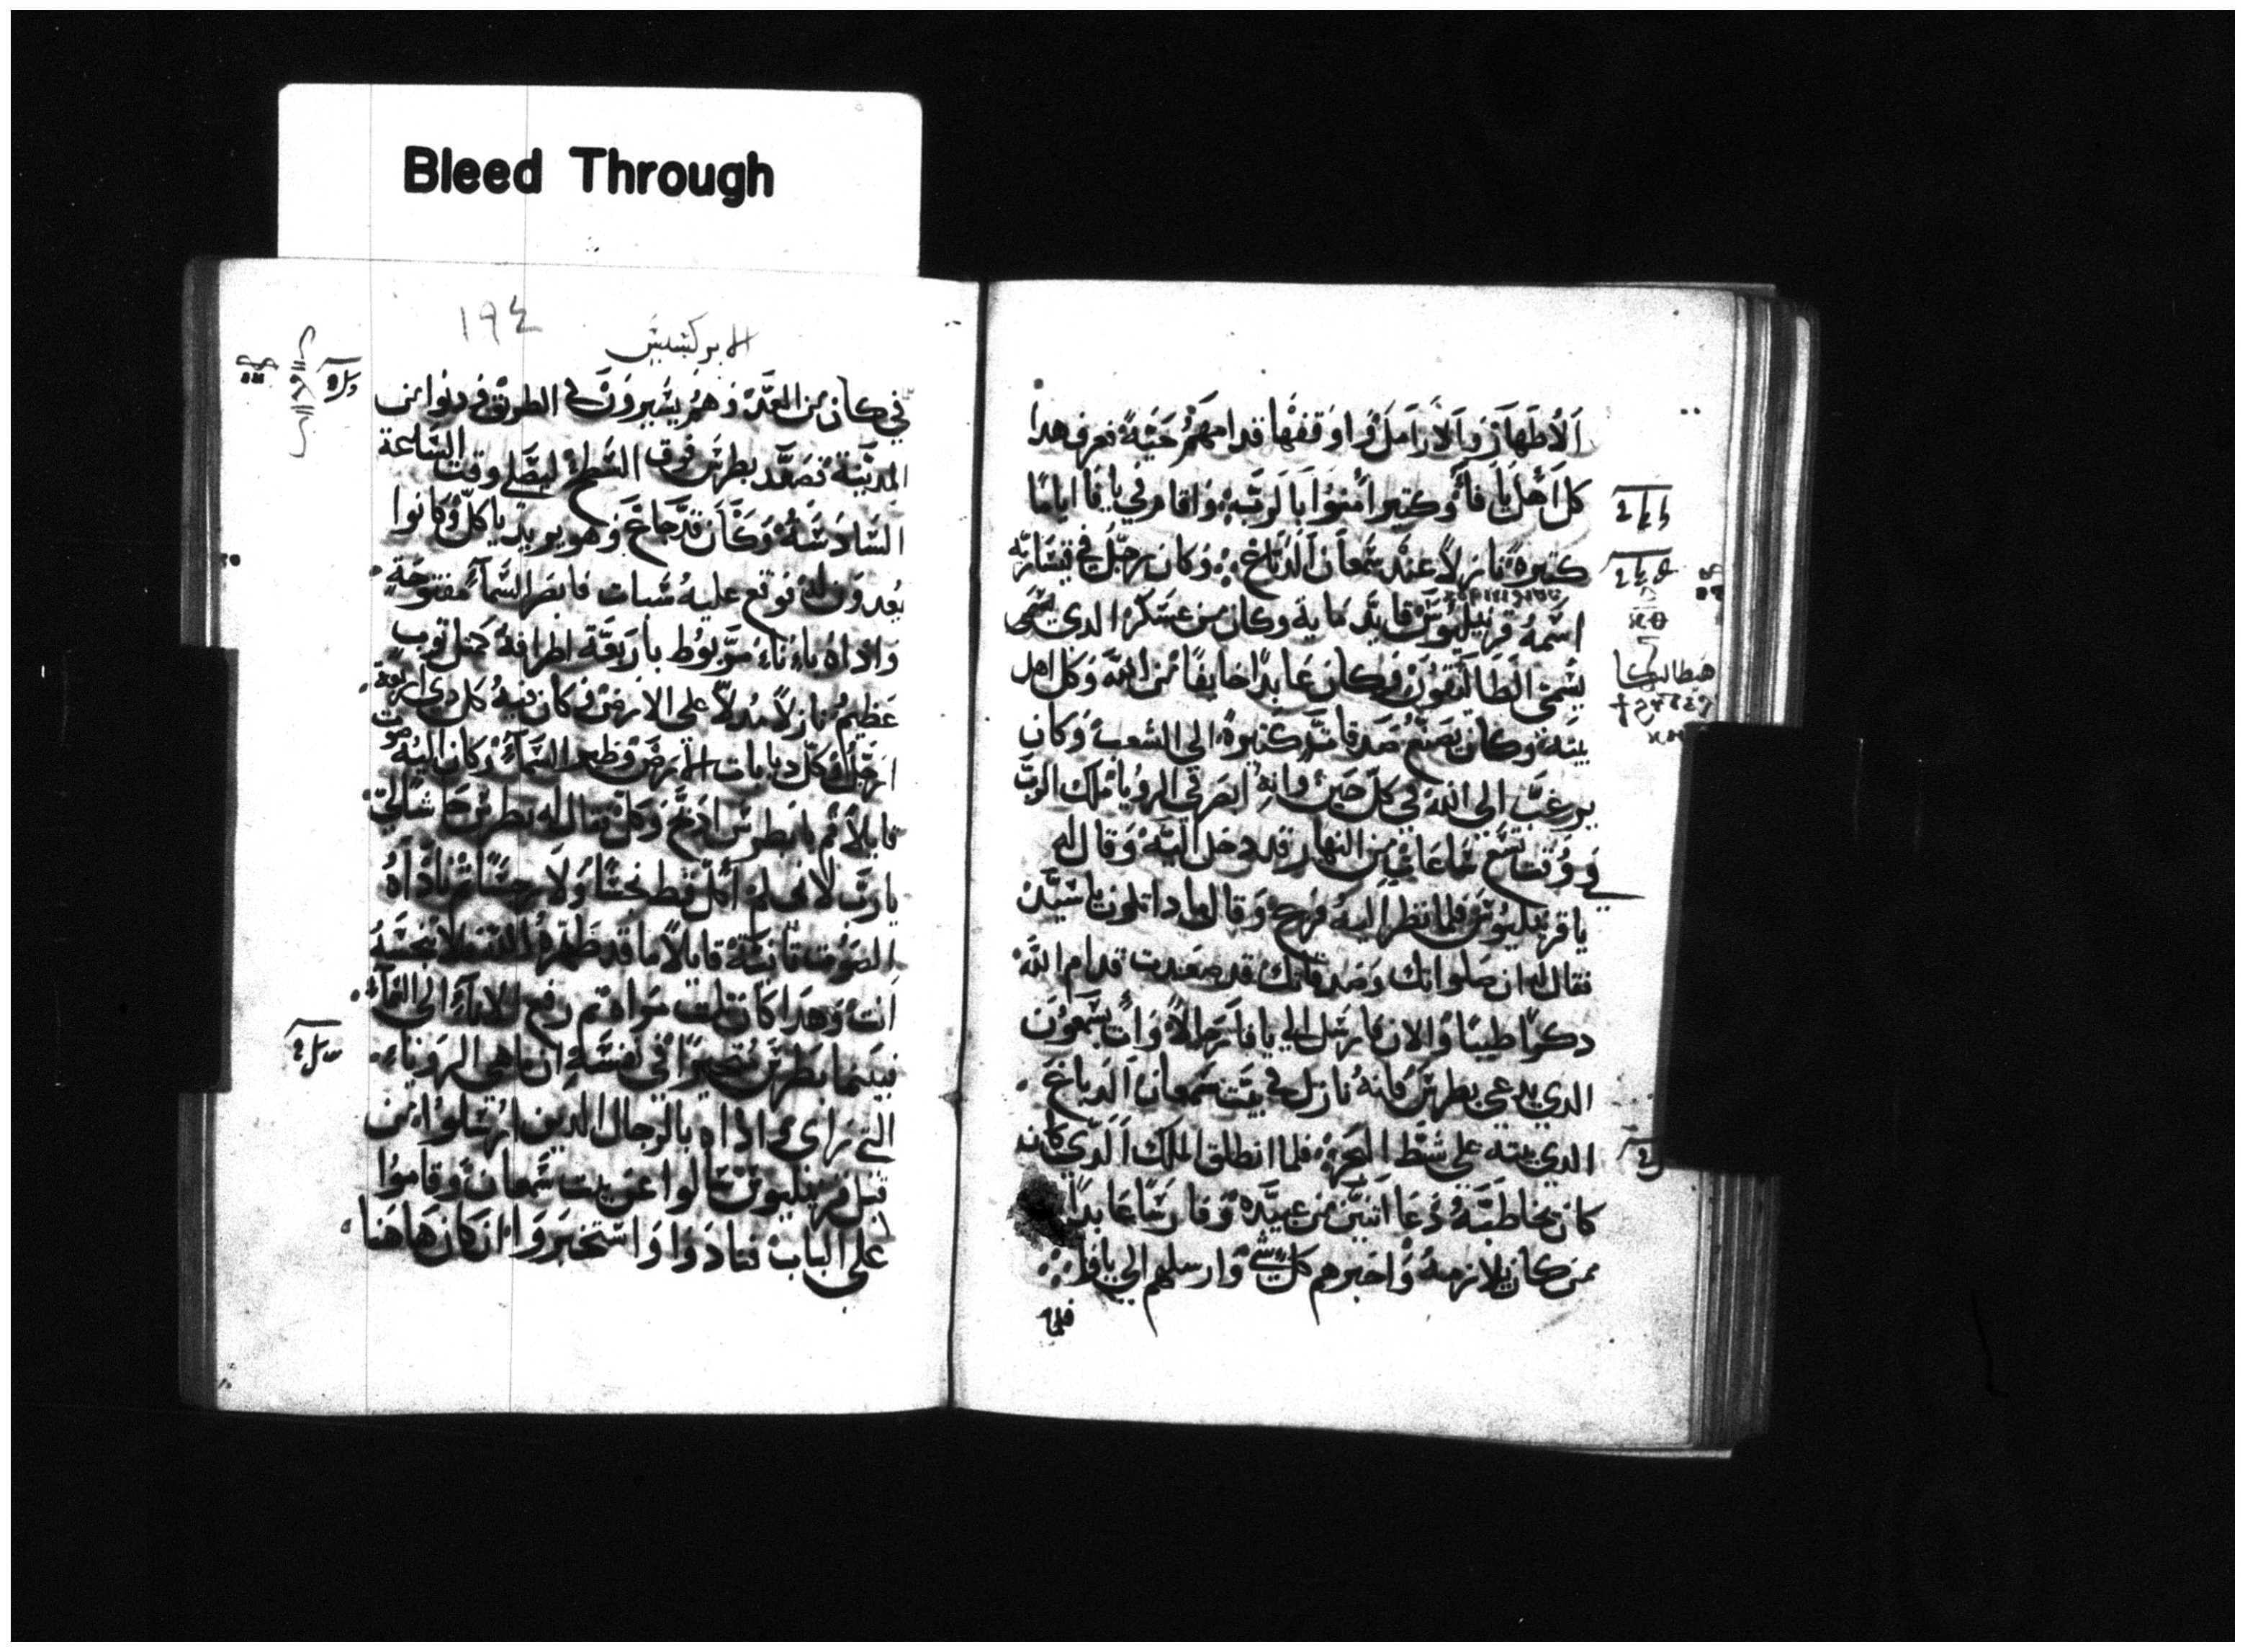 Bleed Through
الأطهار والأرامل واوقفها قدامهم حية فعرف هدا
كل اهل يافا وكتير امنوا بالرب واقام في يافا اياما
كتيرة نازلا عند سمعان الدباغ وكان رجل في قيسارية
اسمه قرنيليوس قايد ماية وكان من عسكر الدي يسمى
يسمى وكان عابدا خايفا من الله وكل اهل
بيته وكان يصنع صدقات كتيرة الي الشعب وكان
يرغب الى الله في كل حين وانه ابصر في الرويا ملاك الرب
في وقت تسع ساعات من النهار قد دخل اليه وقال له
يا قرنيليوس فلما نظر اليه فزع وقال مادا تكون يا سيد
فقال له ان صلواتك وصدقاتك قد صعدت قدام الله
دكرا طيبا والان فارسل الي يافا رجالا وات بسمعون
الدي يدعى بطرس فانه نازل في بيت سمعان الدباغ
الدي بيته على شط البحر فلما انطلق الملاك الدي كان
كان يخاطبه دعا اتنين من عبيده وفارسا عابدا
ممن كان يلازمه واخبرهم كل شي وارسلهم الي يافا
فلما
١٩٤
الابركسيس
في كان من الغد وهم يسيرون في الطريق فدنوا من
المدينة تصعد بطرس فوق السطح ليصلي وقت الساعة
السادسة وكان قد جاع وهو يريد ياكل وكانوا
يعدون له فوقع عليه سبات فابصر السماء مفتوحة
واداه باناء مربوط باربعة اطرافه كمتل توب
عظيم نازلا مدلا على الارض وكان فيه كل دي اربعة
ارجل وكل دبابات الارض وطير السماء وكان اليه صوت
قايلا قم يا بطرس ادبح وكل فقال له بطرس حاشا لي
يارب لاني لم اكل قط نجسا ولا رجسا تم ناداه
الصوت تانية قايلا ما قد طهره الله لا تنجسه
انت وهدا كان تلت مرات تم رفع الاناء الى السماء
فبينما بطرس متحيرا في نفسه ان ما هي الروياء
التي راى واداه بالرجال الدين ارسلوا من
قبل قرنيليوس سالوا عن بيت سمعان وقاموا
على الباب فنادوا واستخبروا ان كان هاهنا